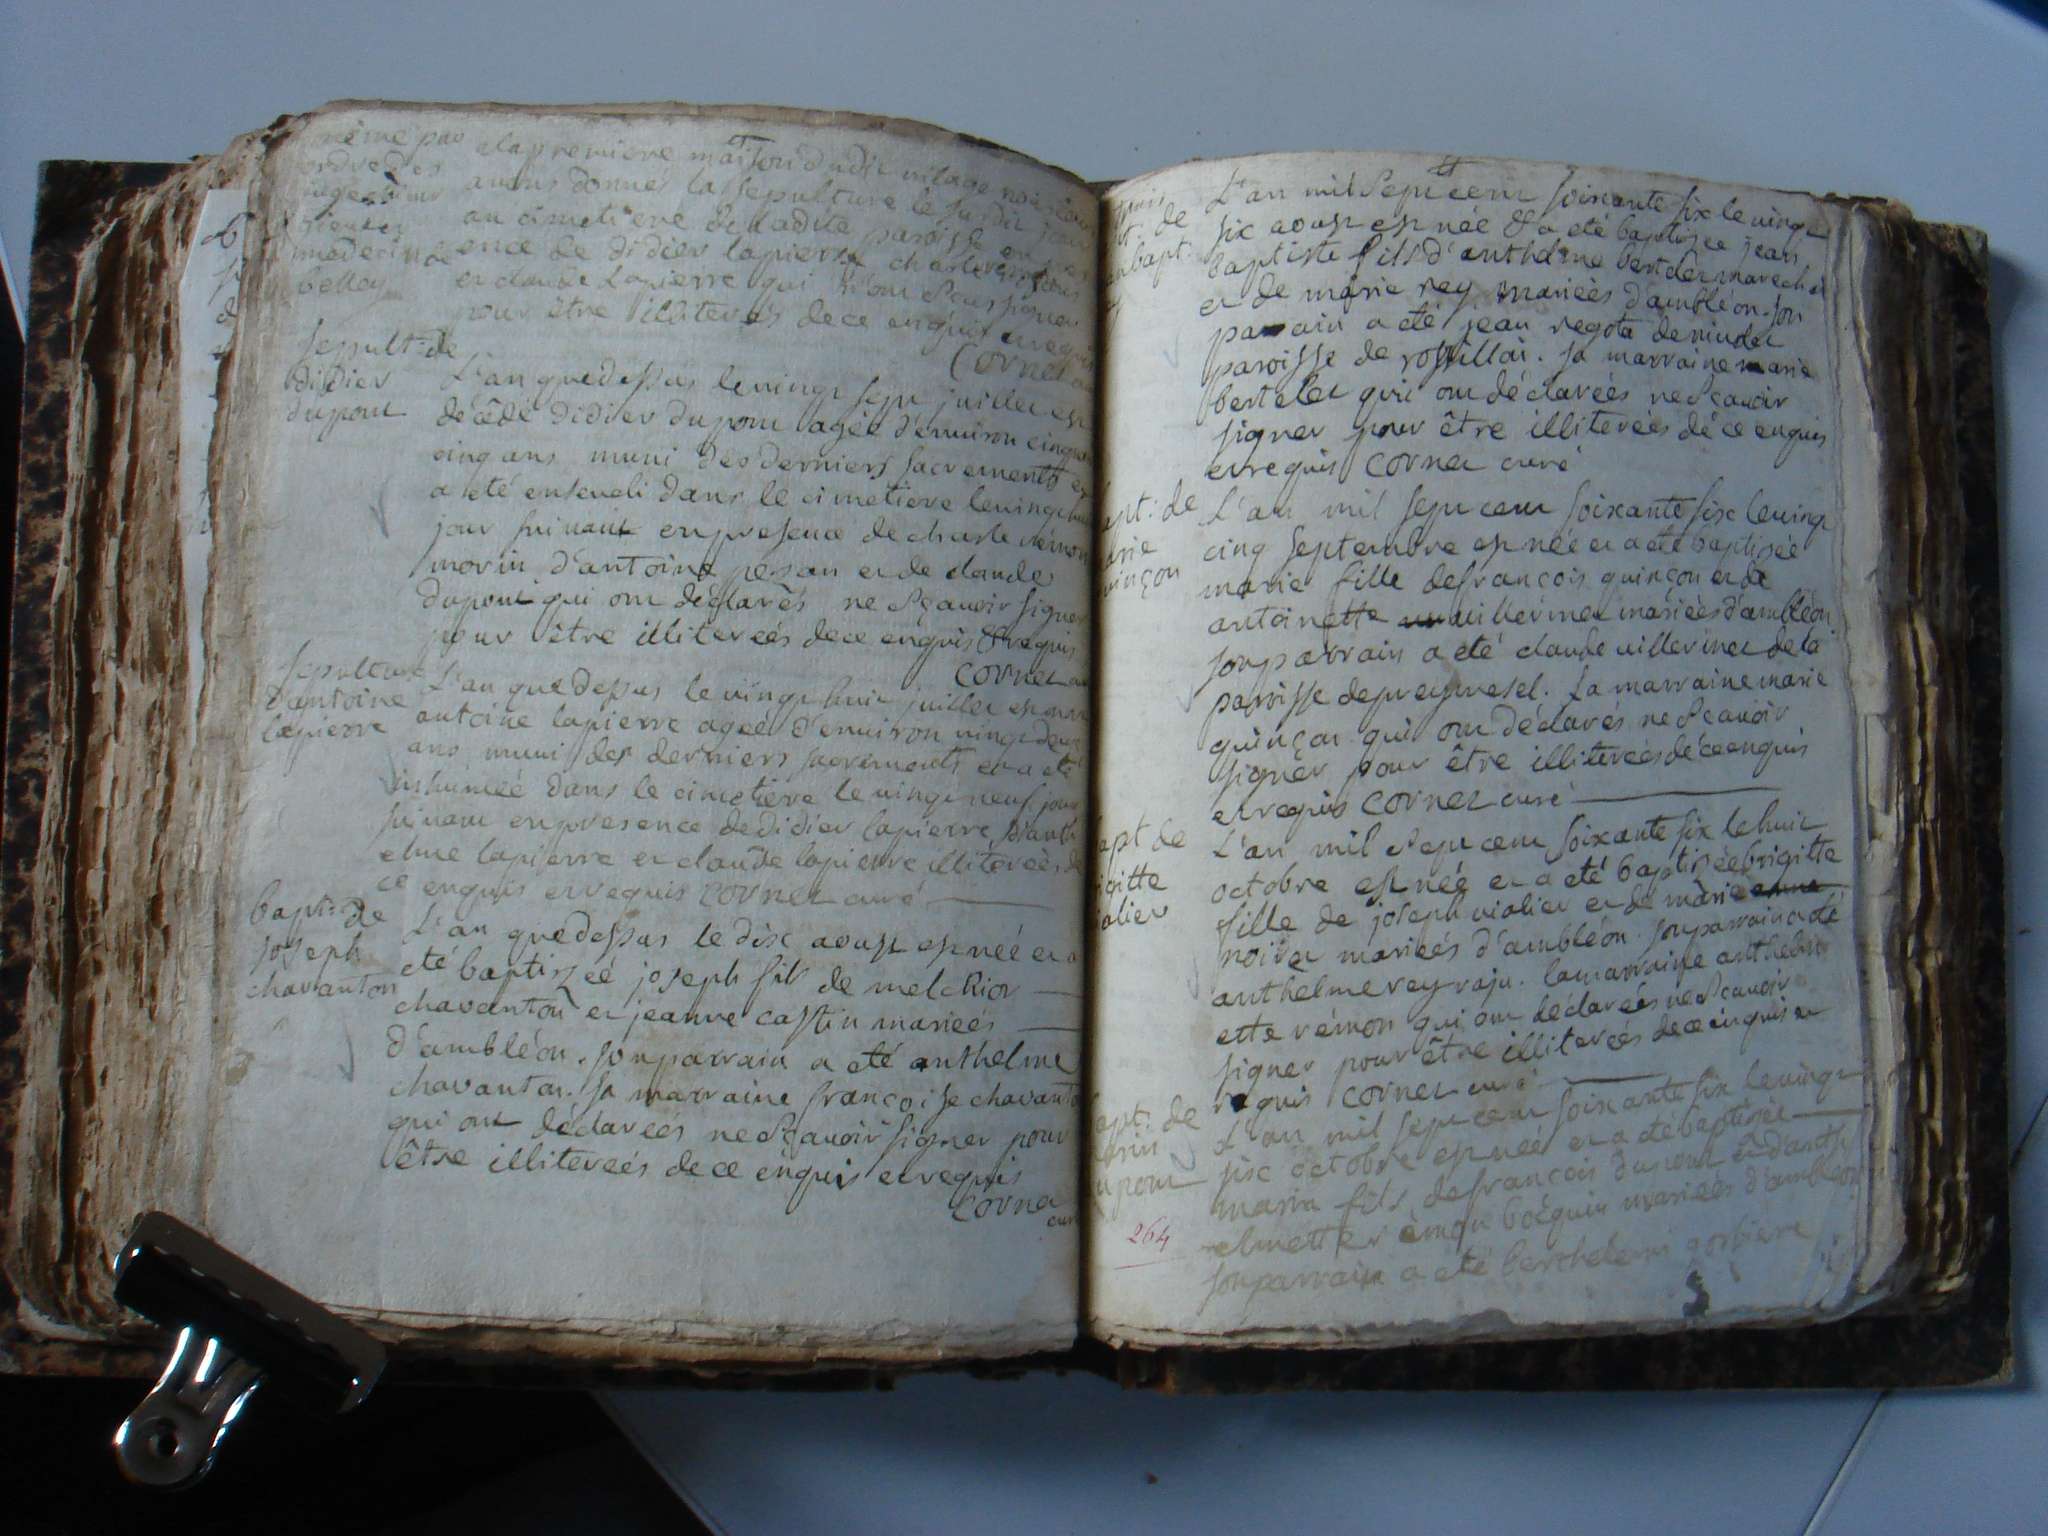 même par
ordre des
medecin de
belley
a la premiere maison dudit vilage nous
avons donnés la sepulture le susdit jour
au cimetiere de ladite paroisse en pres
ence de didier lapierre charle
et claude lapierre qui n'ont sceus signer
pour être illiterés de ce enquis et requis
Cornet
sepult: de
didier
dupont
L'an que dessus le vingt sept juillet est
décédé didier dupont agée d'environ cinquan
cinq ans muni des derniers sacrements et
a été enseveli dans le cimetiere le vingt huit
jour suivant en presence de charle rémon
morin d'antoine persan et de claude
dupont qui ont déclarés ne sçavoir signer
pour être illitereés de ce enquis & requis
cornet
sepulture
d'antoine
lapierre
L'an que dessus le vingt huit juillet est mort
antoine lapierre ageé d'environ vingt deux
ans muni des derniers sacrements et a été
inhumeé dans le cimetiere le vingt neuf jour
suivant en presence de didier lapierre, d'anth
elme lapierre et claude lapierre illitereés de
ce enquis et requis cornet curé
bapt: de
joseph
chavanton
L'an que dessus le dix aoust est neé et a
eté baptizeé joseph fils de melchior
chavanton et jeanne castin marieés
d'ambléon. son parrain a eté anthelme
chavanton. sa marraine françoise chavanto
qui ont déclareés ne sçavoir signer pour
être illitereés de ce enquis et requis
cornet
curé
de
bapt:
L'an mil sept cent soixante six le vingt
six aoust est née & a eté baptizee jean
baptiste fils d'anthelme bertelet marechal
et de marie rey marieés d'ambléon. son
parrain a eté jean regota de
paroisse de rossillon. sa marraine marie
bertelet qui ont déclareés ne sçavoir
signer pour être illitereés dé ce enquis
et requis cornet curé
apt: de
arie
uinçon
L'an mil sept cent soixante six le vingt
cinq septembre est née et a eté baptisée
marie fille de françois quinçon et de
antoinette vuillermet marieés d'ambléon
son parrain a eté claude villermet de la
paroisse de preymesel. sa marraine marie
quinçon qui ont déclarés ne sçavoir
signer pour être illitereés dé ce enquis
et requis cornet curé
apt de
igitte
iolier
L'an mil sept cent soixante six le huit
octobre est née et a eté baptisée brigitte
fille de joseph violier et de marie
noiret marieés d'ambléon. son parrain a eté
anthelme rey raju. la marraine anthelm
ette rémon qui ont déclareés ne sçavoir
signer pour être illitereés de ce enquis et
requis cornet curé
apt: de
arin
upont
L'an mil sept cent soixante six le vingt
six octobre est neé et a eté baptisée
marin fils de françois dupont et d'anth
elmette rémon boéguin marieés d'ambléon
son parrain a eté berthelemi gorbiere
264